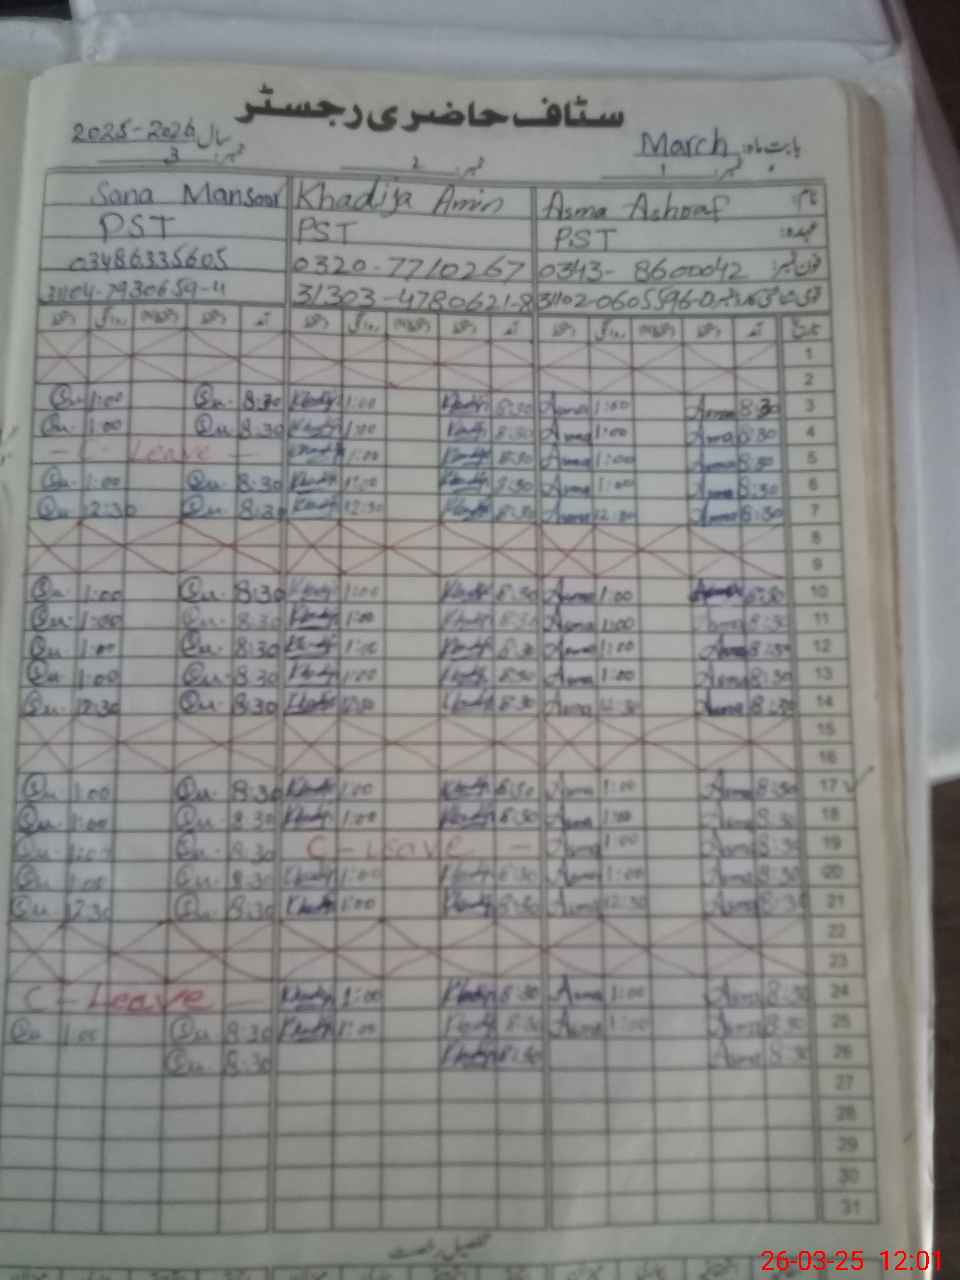 سٹاف حاضری رجسٹر
بابت ماہ: March سال 2025-2026
نمبر: 1 نمبر: 2 نمبر: 3
نام: Asma Ashraf Khadija Amin Sana Mansoor
عہدہ: PST PST PST
فون نمبر: 0343-8600042 0320-7710267 03486335605
31102-0605596-0 31303-4780621-8 31104-7930659-4
تاریخ آمد دستخط روانگی دستخط آمد دستخط روانگی دستخط آمد دستخط روانگی دستخط
1
2
3 8:30 Asma 1:00 Asma 8:30 Khadija 1:00 Khadija 8:30 1:00
4 8:30 Asma 1:00 Asma 8:30 Khadija 1:00 Khadija 8:30 1:00
5 8:30 Asma 1:00 Asma 8:30 Khadija 1:00 Khadija - C - Leave -
6 8:30 Asma 1:00 Asma 8:30 Khadija 1:00 Khadija 8:30 1:00
7 8:30 Asma 12:30 Asma 8:30 Khadija 12:30 Khadija 8:30 12:30
8
9
10 8:30 Asma 1:00 Asma 8:30 Khadija 1:00 Khadija 8:30 1:00
11 8:30 Asma 1:00 Asma 8:30 Khadija 1:00 Khadija 8:30 1:00
12 8:30 Asma 1:00 Asma 8:30 Khadija 1:00 Khadija 8:30 1:00
13 8:30 Asma 1:00 Asma 8:30 Khadija 1:00 Khadija 8:30 1:00
14 8:30 Asma 12:30 Asma 8:30 Khadija 12:30 Khadija 8:30 12:30
15
16
17 8:30 Asma 1:00 Asma 8:30 Khadija 1:00 Khadija 8:30 1:00
18 8:30 Asma 1:00 Asma 8:30 Khadija 1:00 Khadija 8:30 1:00
19 8:30 Asma 1:00 Asma C - Leave - 8:30 1:00
20 8:30 Asma 1:00 Asma 8:30 Khadija 1:00 Khadija 8:30 1:00
21 8:30 Asma 12:30 Asma 8:30 Khadija Khadija 8:30 12:30
22
23
24 8:30 Asma 1:00 Asma 8:30 Khadija 1:00 Khadija C - Leave -
25 8:30 Asma 1:00 Asma 8:30 Khadija 1:00 Khadija 8:30 1:00
26 8:30 Asma 8:30 Khadija 8:30
27
28
29
30
31
تفصیل رخصت
26-03-25 12:01